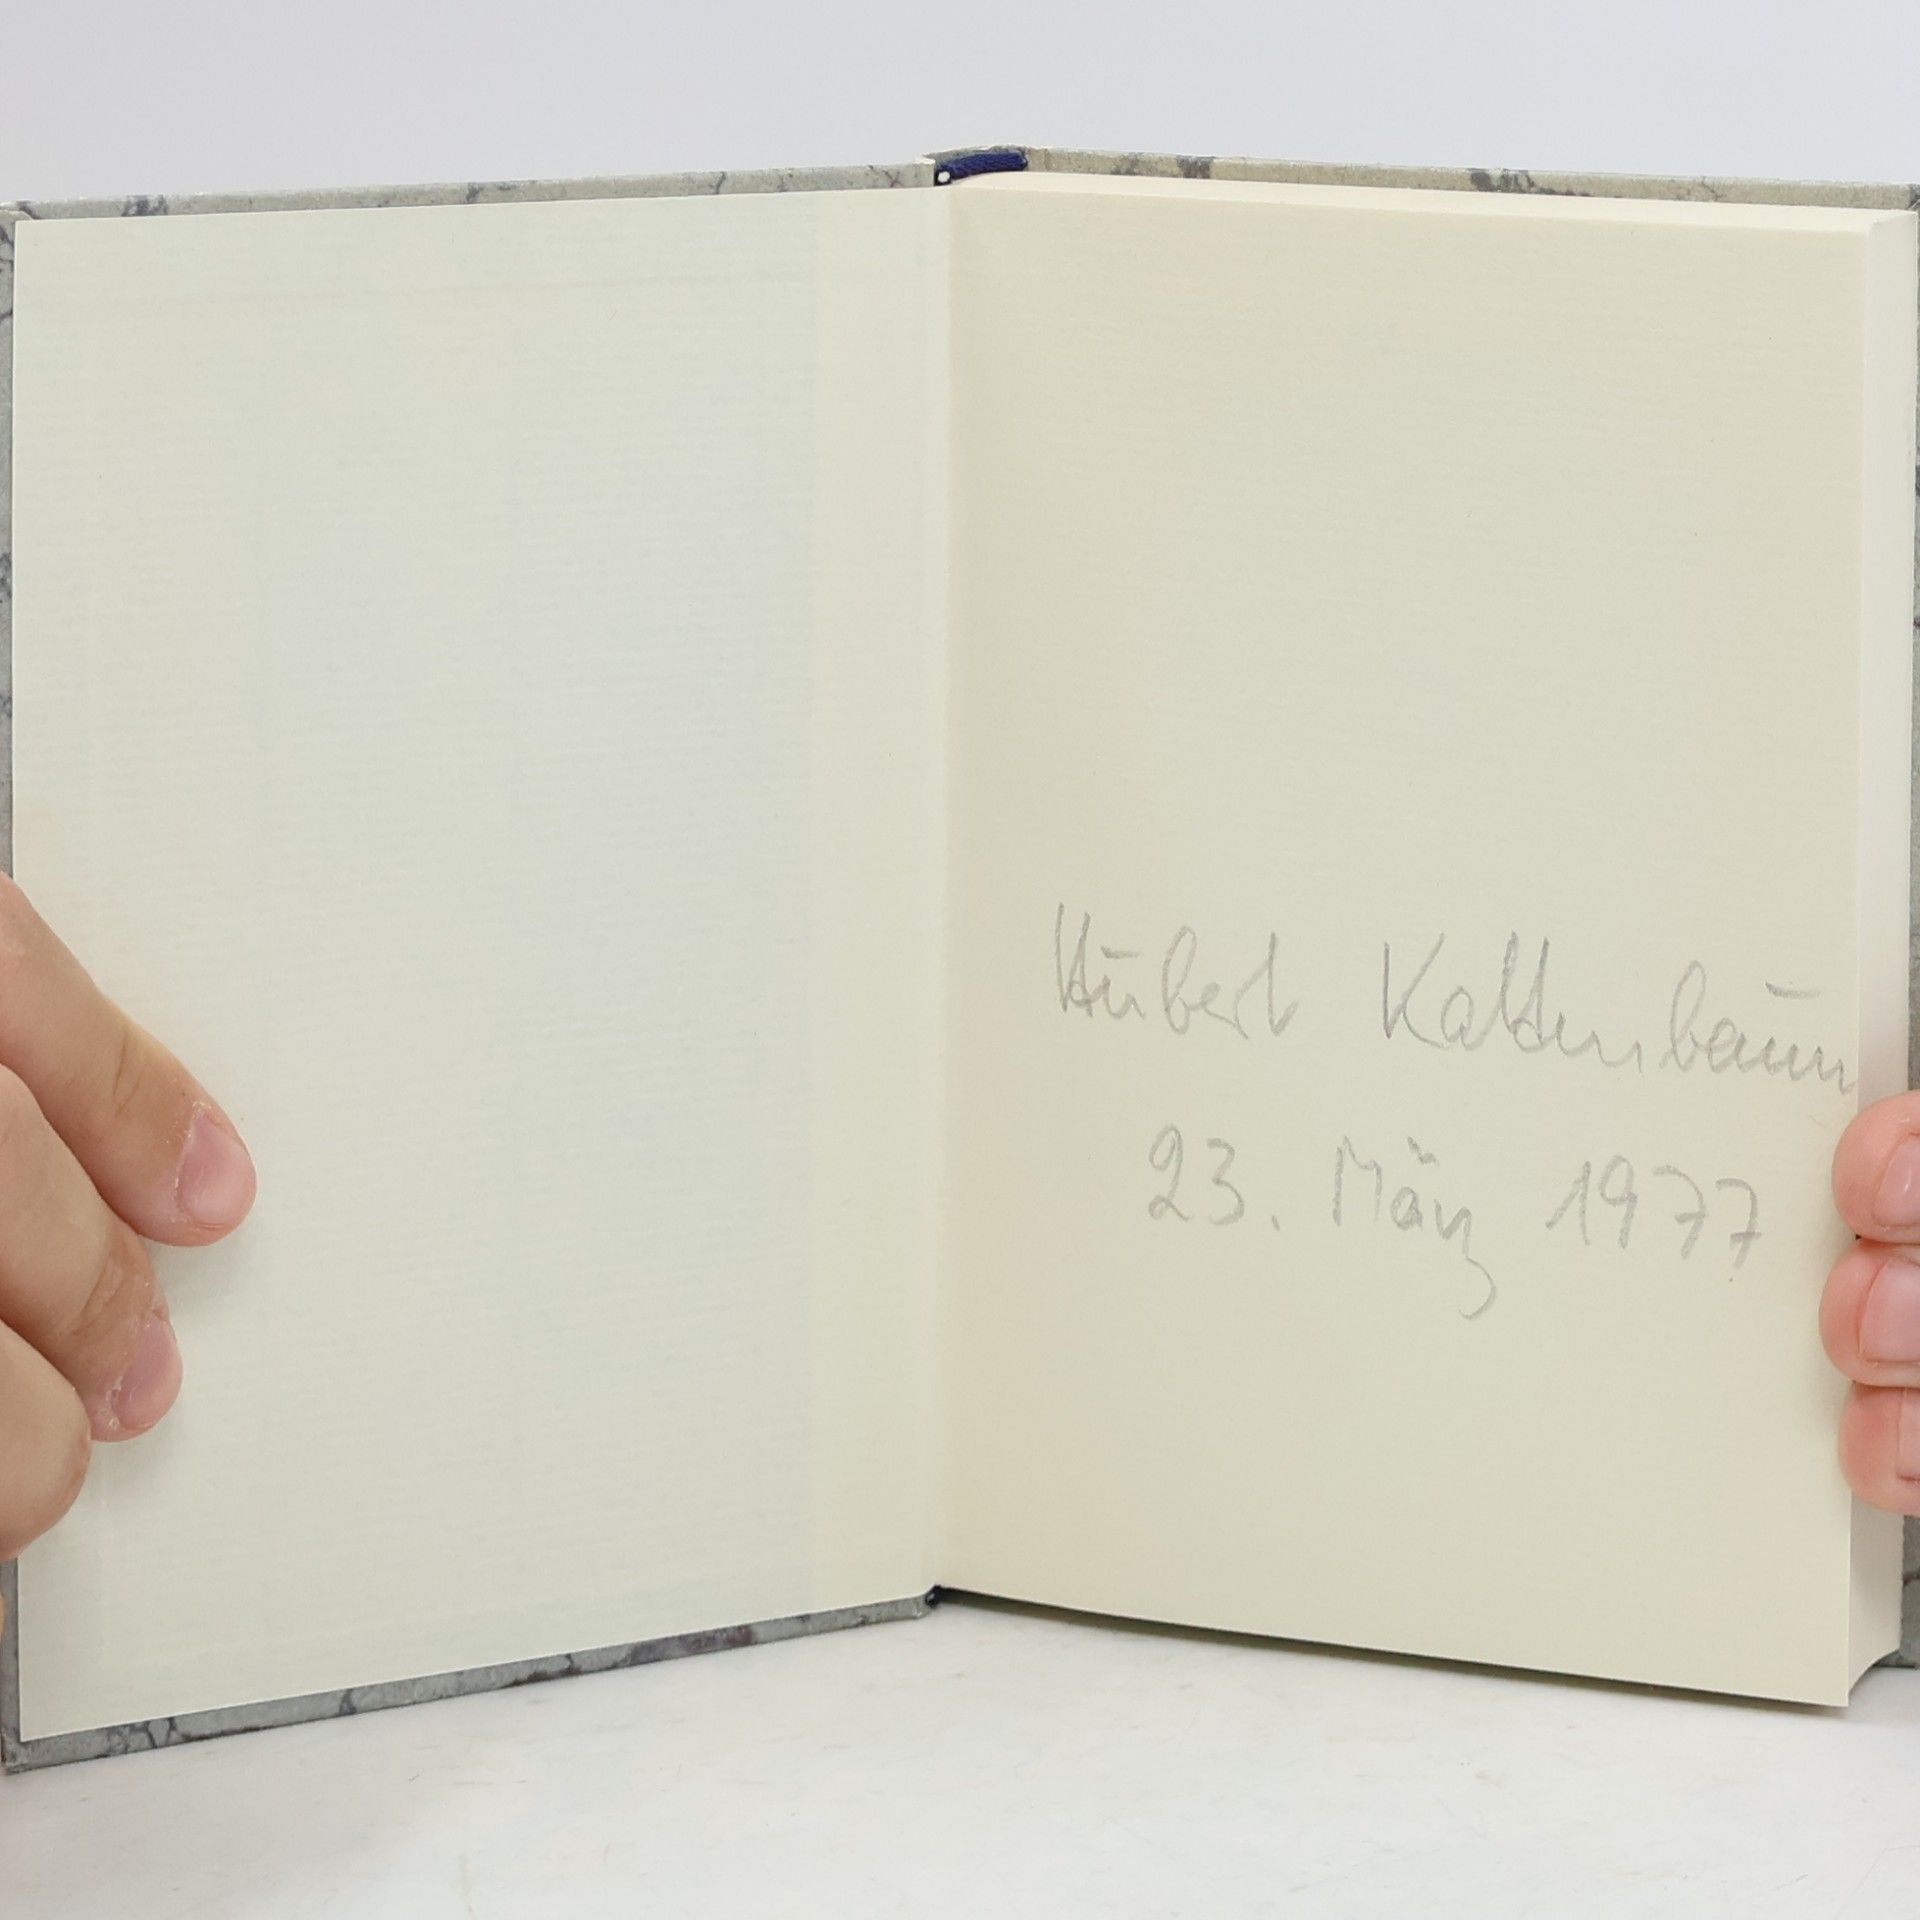 Hubert Kattenbaum
23. März 1977